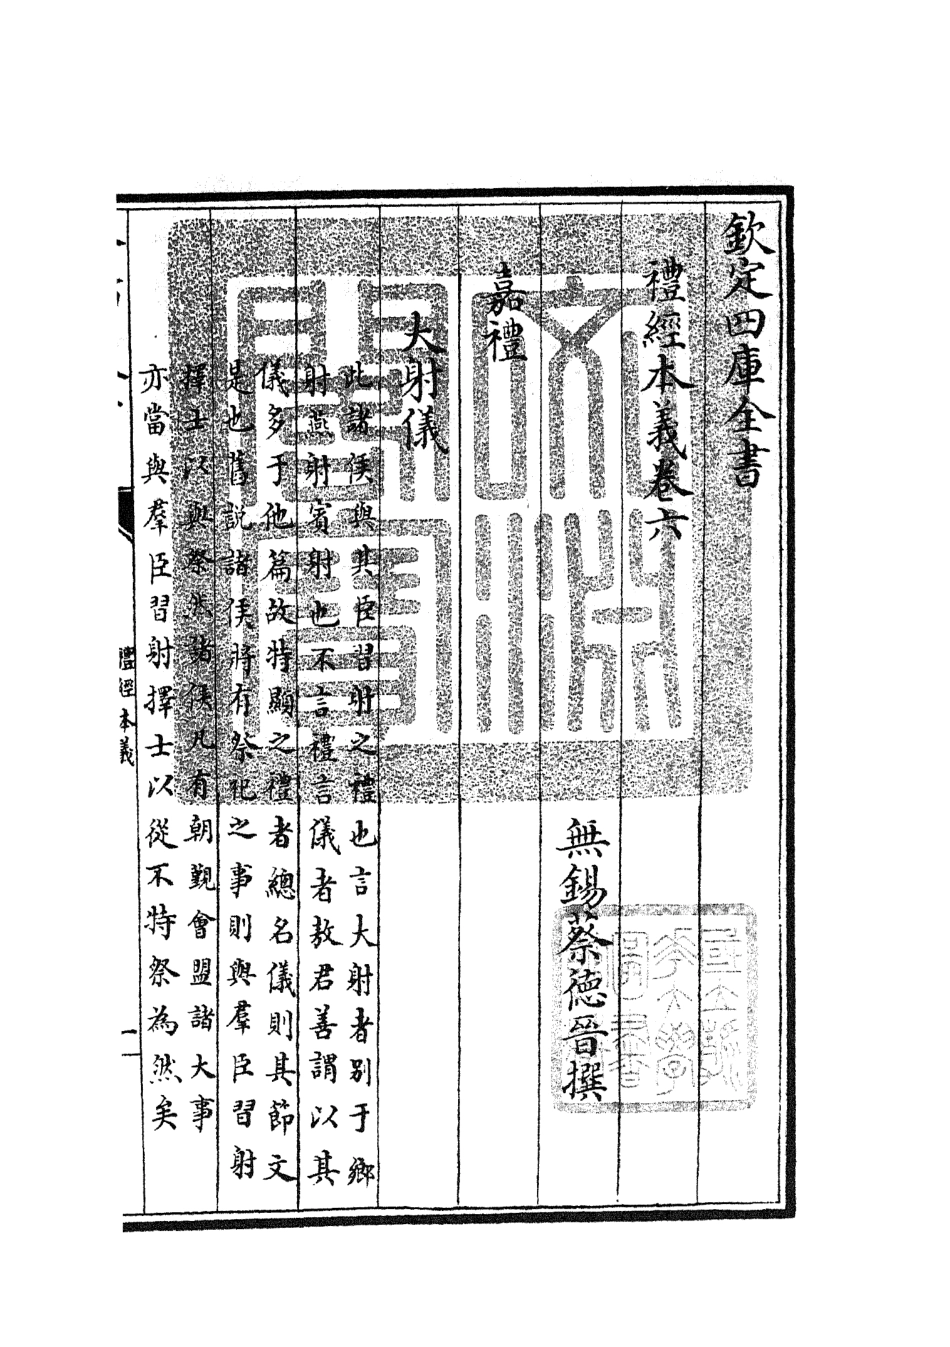 欽定四庫全書
禮經本義卷六
無錫蔡德晉撰
嘉禮
大射儀
此諸侯與其臣習射之禮也言大射者别于鄉
射燕射賓射也不言禮言儀者敖君善謂以其
儀多于他篇故特顯之禮者總名儀則其節文
是也舊説諸侯將有祭祀之事則與羣臣習射
擇士以與祭然諸侯凡有朝覲會盟諸大事
亦當與羣臣習射擇士以從不特祭為然矣
禮經本義
一